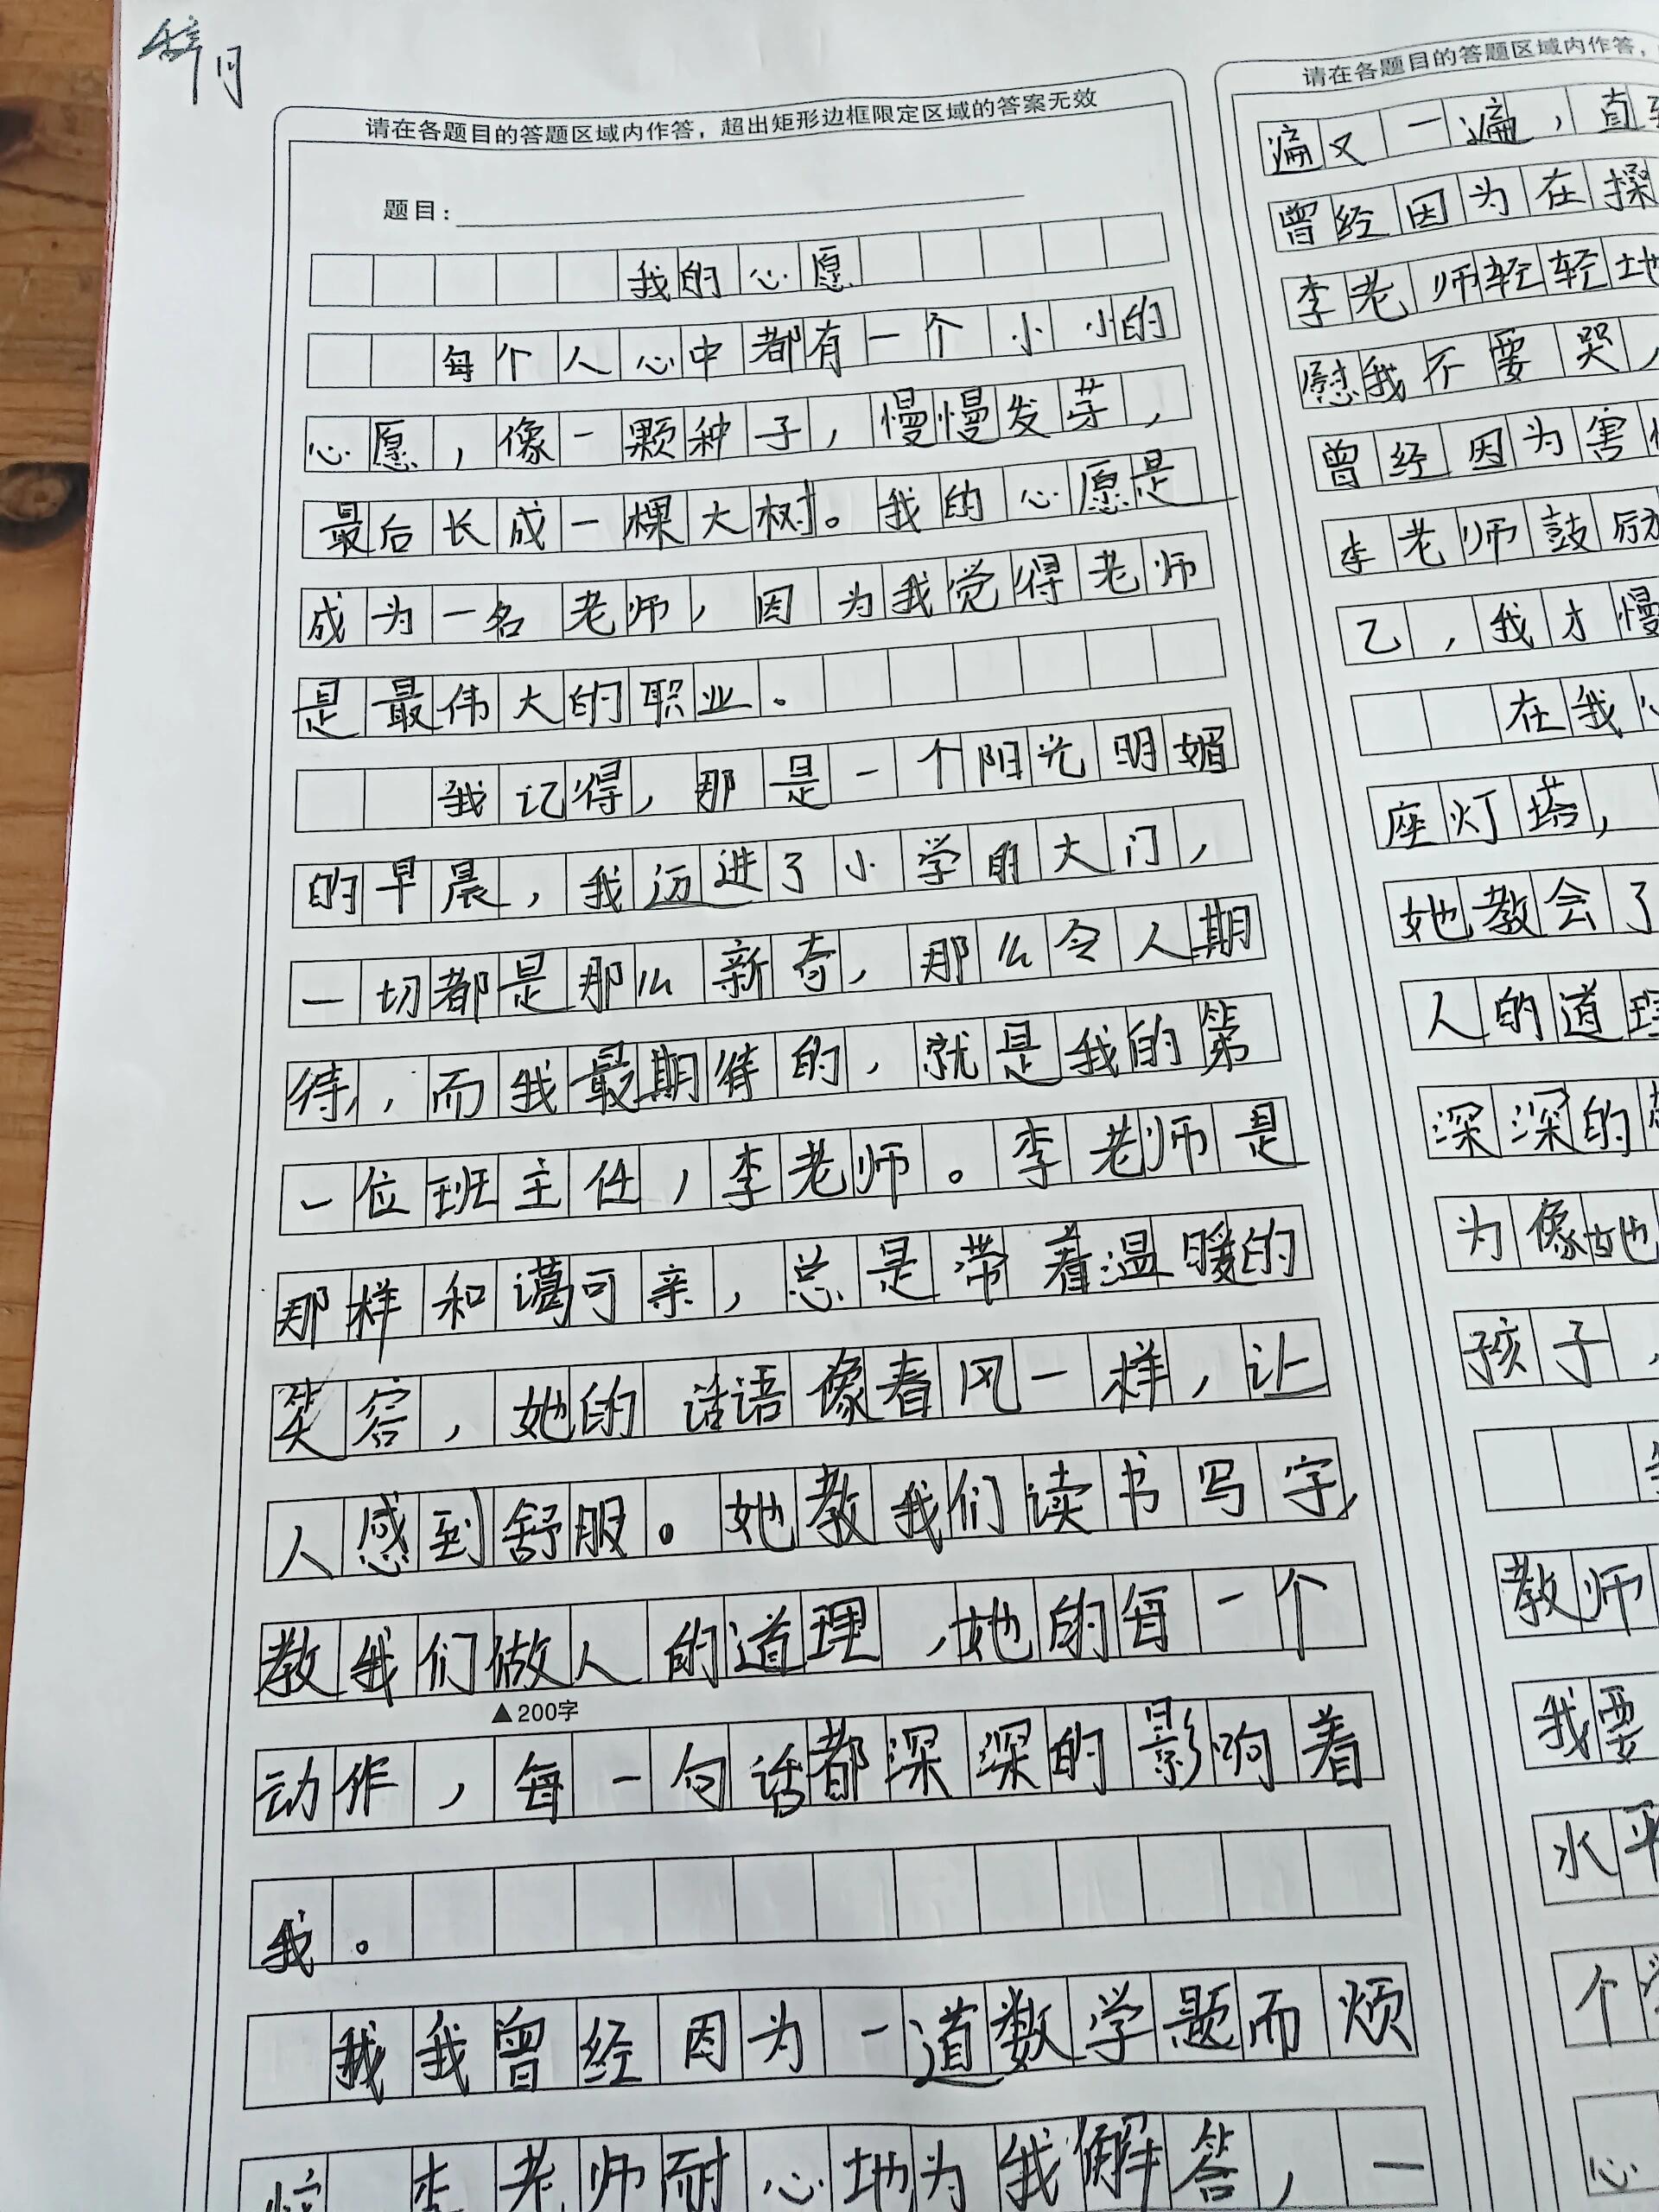 请在各题目的答题区域内作答，超出矩形边框限定区域的答案无效
题目：
我的心愿
每个人心中都有一个小小的
心愿，像一颗种子，慢慢发芽，
最后长成一棵大树。我的心愿是
成为一名老师，因为我觉得老师
是最伟大的职业。
我记得，那是一个阳光明媚
的早晨，我迈进了小学的大门，
一切都是那么新奇，那么令人期
待，，而我最期待的，就是我的第
一位班主任，李老师。李老师是
那样和蔼可亲，总是带着温暖的
笑容，她的话语像春风一样，让
人感到舒服。她教我们读书写字，
教我们做人的道理，她的每一个
▲200字
动作，每一句话都深深的影响着
我。
我我曾经因为一道数学题而烦
李老师耐心地为我解答，一
请在各题目的答题区域内作答，
遍又一遍，直到
曾经因为在操
李老师轻轻地
慰我不要哭，
曾经因为害怕
李老师鼓励
乙，我才慢
在我心
座灯塔，
她教会了
人的道理
深深的
为像她
孩子，
教师
我要
水平
个
心